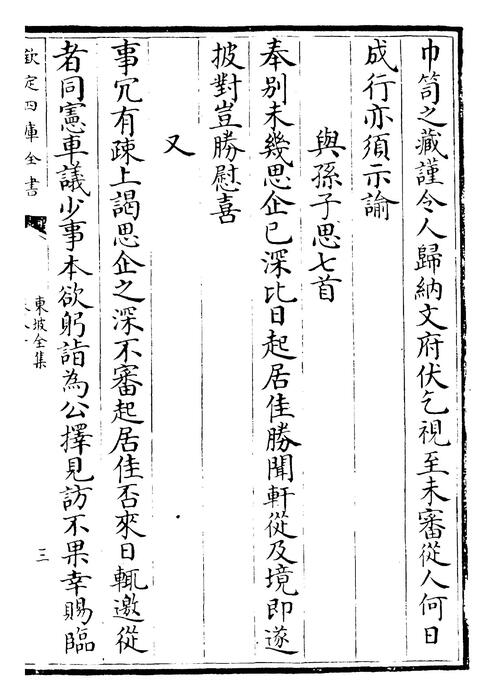 巾笥之藏謹令人歸納文府伏乞視至未審從人何日
成行亦須示諭
與孫子思七首
奉別未幾思企已深比日起居佳勝聞軒從及境即遂
披對豈勝慰喜
又
事冗有疎上謁思企之深不審起居佳否來日輒邀從
者同憲車議少事本欲躬詣為公擇見訪不果幸賜臨
欽定四庫全書
東坡全集
三